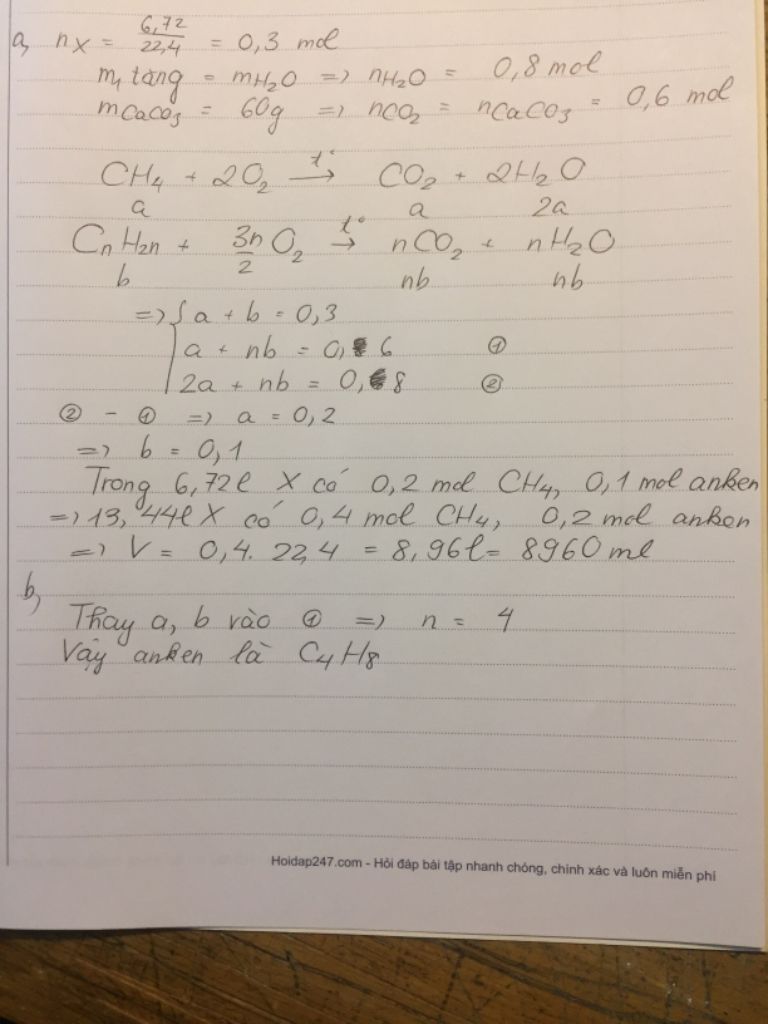 a, nX = 6,72 / 22,4 = 0,3 mol
m1 tăng = mH2O => nH2O = 0,8 mol
mCaCO3 = 60g => nCO2 = nCaCO3 = 0,6 mol
CH4 + 2O2 t° → CO2 + 2H2O
a a 2a
CnH2n + 3n/2 O2 t° → nCO2 + nH2O
b nb nb
=> { a + b = 0,3
a + nb = 0,6 ①
2a + nb = 0,8 ②
② - ① => a = 0,2
=> b = 0,1
Trong 6,72l X có 0,2 mol CH4, 0,1 mol anken
=> 13,44l X có 0,4 mol CH4, 0,2 mol anken
=> V = 0,4. 22,4 = 8,96l = 8960 ml
b,
Thay a, b vào ① => n = 4
Vậy anken là C4H8
Hoidap247.com - Hỏi đáp bài tập nhanh chóng, chính xác và luôn miễn phí